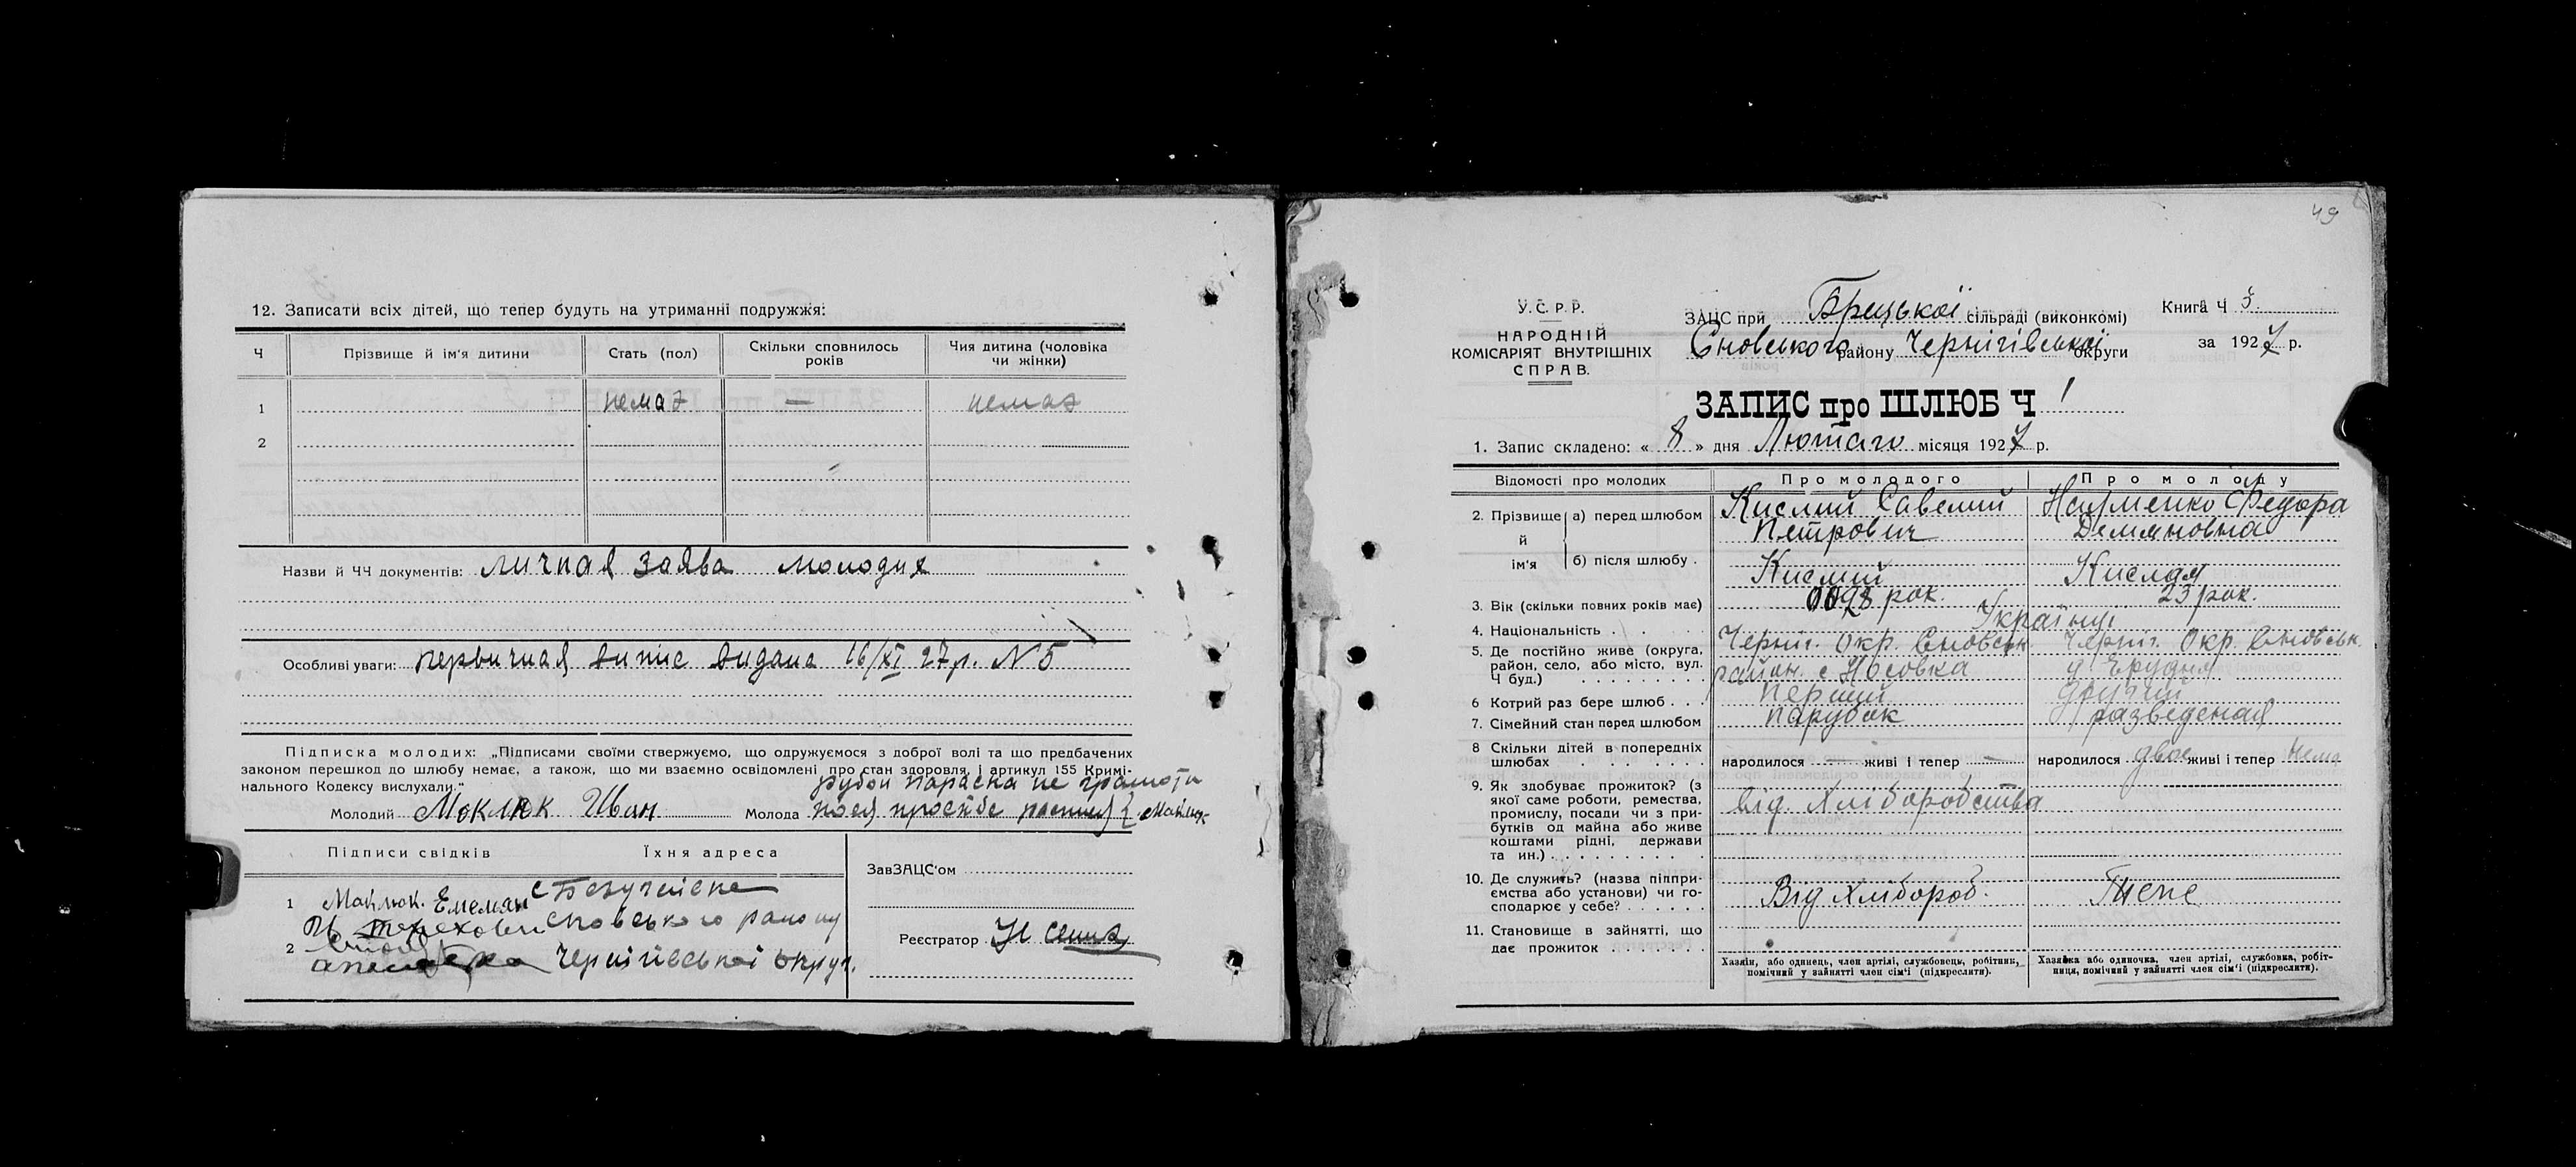 12. Записати всіх дітей, що тепер будуть на утриманні подружжя:
Ч Прізвище й ім'я дитини Стать (пол) Скільки сповнилось років Чия дитина (чоловіка чи жінки)
1 немає — немає
2
Назви й ЧЧ документів: личная заява молодих
Особливі уваги: первичная випис видана 16/XI 27 р. № 5
Підписка молодих: „Підписами своїми ствержуємо, що одружуємося з доброї волі та що предбачених
законом перешкод до шлюбу немає, а також, що ми взаємно освідомлені про стан здоровля і артикул 155 Кримі-
нального Кодексу вислухали."
Параска не грамотн
Молодий Моклюк Иван Молода простбе
Підписи свідків Їхня адреса
1 Маклюк. Емельян
сновського району
2 Чернігівської округ.
ЗавЗАЦС'ом
Реєстратор
49
У. С. Р. Р.
НАРОДНІЙ
КОМІСАРІЯТ ВНУТРІШНІХ
СПРАВ.
ЗАЦС при Брецької сільраді (виконкомі)
Сновського району Чернігівської округи
Книга Ч 3
за 1927 р.
ЗАПИС про ШЛЮБ Ч 1
1. Запис складено: « 8 » дня Лютаго місяця 1927 р.
Відомості про молодих Про молодого Про молоду
2. Прізвище й ім'я а) перед шлюбом Кислий Савелий Петрович Науменко Федора Демяновна
б) після шлюбу . Кислий Кислая
3. Вік (скільки повних років має) 28 рок. 23 рок.
4. Національність . . Українці
5. Де постійно живе (округа, район, село, або місто, вул. Ч буд.) . . . . . . . . . Черніг. Окр. Сновськ. район. с Носовка Черніг. Окр. Сновськ.
6 Котрий раз бере шлюб . . . Перший другий
7. Сімейний стан перед шлюбом парубок разведеная
8 Скільки дітей в попередніх шлюбах . . . . . народилося — живі і тепер — народилося двое живі і тепер нема
9. Як здобуває прожиток? (з якої саме роботи, ремества, промислу, посади чи з прибутків од майна або живе коштами рідні, держави та ин.) . . . . . . . . . від хліборобства
10. Де служить? (назва піпприємства або установи) чи господарює у себе? . . . . . . Від хлібороб. Теж
11. Становище в зайнятті, що дає прожиток . . . . . . . .
Хазяїн, або одинець, член артілі, службовець, робітник, помічний у зайнятті член сім'ї (підкреслити).
Хазяйка або одиночка, член артілі, службовка, робітниця, помічний у зайнятті член сім'ї (підкреслити).